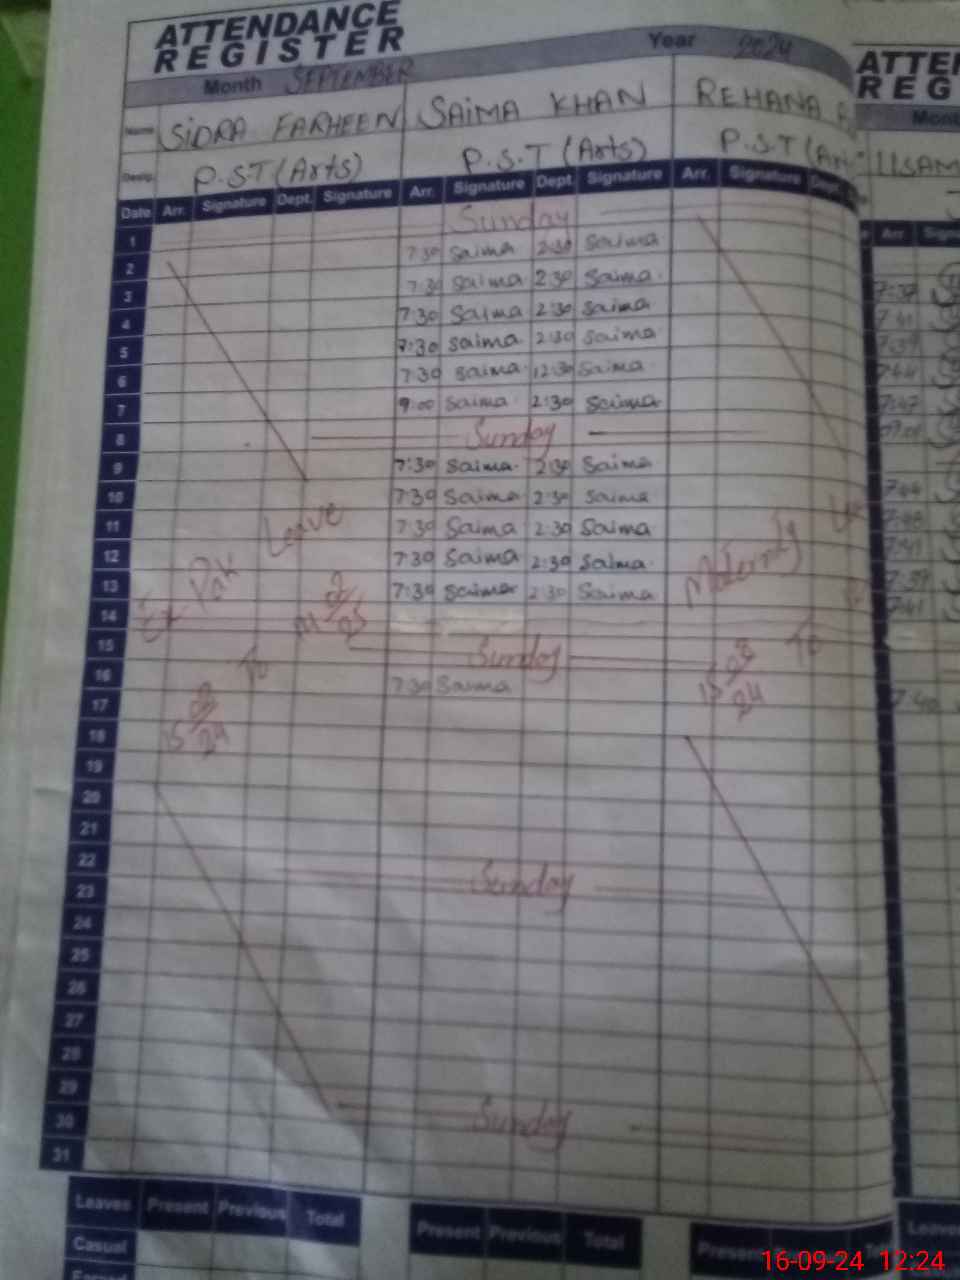 ATTENDANCE
REGISTER
Month SEPTEMBER Year 2024
Name SIDRA FARHEEN SAIMA KHAN REHANA
Desig. P.S.T (Arts) P.S.T (Arts) P.S.T
Date Arr. Signature Dept. Signature Arr. Signature Dept. Signature Arr. Signature Dept.
1 Sunday
2 7:30 Saima 2:30 Saima
3 7:30 Saima 2:30 Saima.
4 7:30 Saima 2:30 Saima
5 7:30 Saima. 2:30 Saima.
6 7:30 Saima. 12:30 Saima.
7 9:00 Saima. 2:30 Saima
8 Sunday
9 7:30 Saima. 2:30 Saima
10 7:30 Saima 2:30 Saima
11 7:30 Saima 2:30 Saima
12 7:30 Saima 2:30 Saima.
13 7:30 Saima 2:30 Saima
14
15 Sunday
16 7:30 Saima
17
18
19
20
21
22 Sunday
23
24
25
26
27
28
29 Sunday
30
31
Ex-Pak Leave
15 08/24 To
Maternity
15 08/24 To
Leaves Present Previous Total Present Previous Total Present
Casual
ATTEN
REG
USAM
Arr.
7:41
7:39
7:44
7:47
7:44
7:41
7:39
7:41
7:40
Leave
16-09-24 12:24